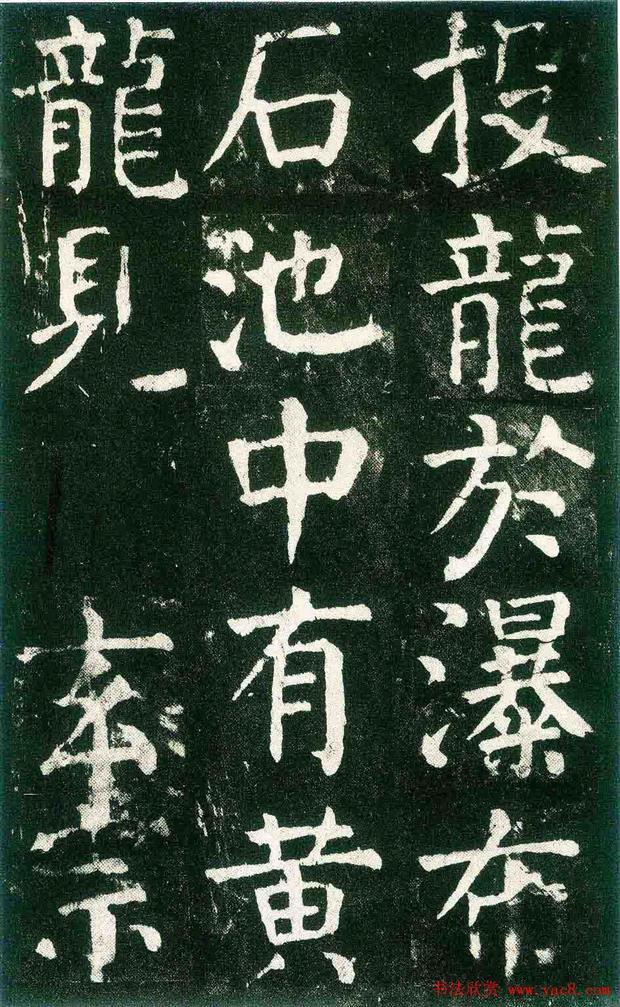 投龍於瀑布
石池中有黃
龍見 玄宗
书法欣赏 www.yac8.com